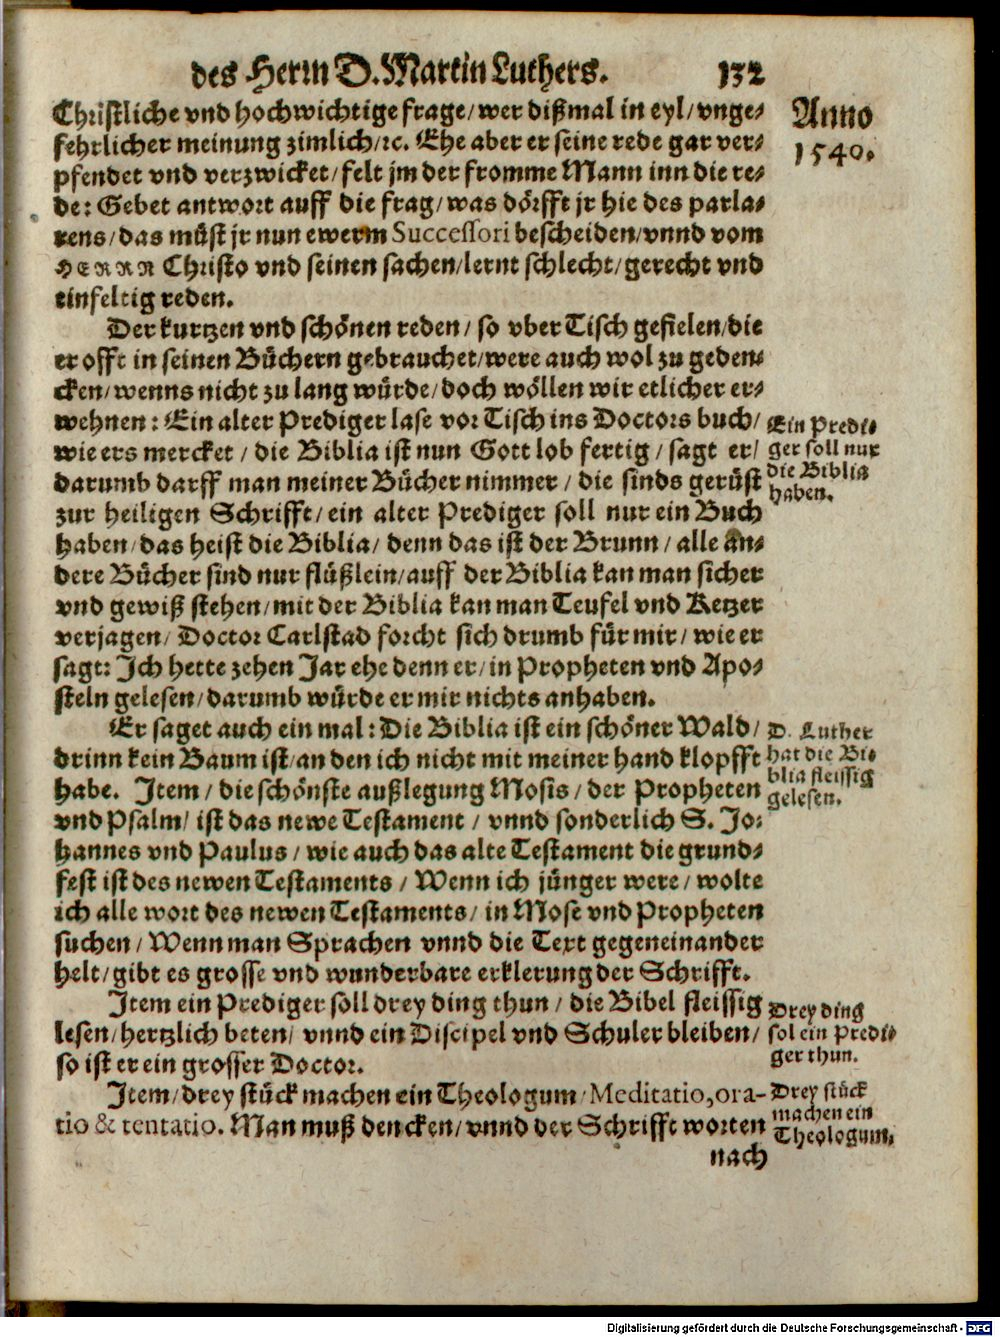 des Herrn D. Martin Luthers. 132
Christliche vnd hochwichtige frage/ wer dißmal in eyl/ vnge⸗
fehrlicher meinung zimlich/ ꝛc. Ehe aber er seine rede gar ver⸗
pfendet vnd verzwicket/ felt jm der fromme Mann inn die re⸗
de: Gebet antwort auff die frag/ was dörfft jr hie des parla⸗
rens/ das müst jr nun ewerm Successori bescheiden/ vnnd vom
HERRN Christo vnd seinen sachen/ lernt schlecht/ gerecht vnd
einfeltig reden.
Der kurtzen vnd schönen reden/ so vber Tisch gefielen/ die
er offt in seinen Büchern gebrauchet/ were auch wol zu geden⸗
cken/ wenns nicht zu lang würde/ doch wöllen wir etlicher er⸗
wehnen: Ein alter Prediger lase vor Tisch ins Doctors buch/
wie ers mercket/ die Biblia ist nun Gott lob fertig/ sagt er/
darumb darff man meiner Bücher nimmer/ die sinds gerüst
zur heiligen Schrifft/ ein alter Prediger soll nur ein Buch
haben/ das heist die Biblia/ denn das ist der Brunn/ alle an⸗
dere Bücher sind nur flüßlein/ auff der Biblia kan man sicher
vnd gewiß stehen/ mit der Biblia kan man Teufel vnd Ketzer
verjagen/ Doctor Carlstad forcht sich drumb für mir/ wie er
sagt: Ich hette zehen Jar ehe denn er/ in Propheten vnd Apo⸗
steln gelesen/ darumb würde er mir nichts anhaben.
Er saget auch ein mal: Die Biblia ist ein schöner Wald/
drinn kein Baum ist/ an den ich nicht mit meiner hand klopfft
habe. Item/ die schönste außlegung Mosis/ der Propheten
vnd Psalm/ ist das newe Testament/ vnnd sonderlich S. Jo⸗
hannes vnd Paulus/ wie auch das alte Testament die grund⸗
fest ist des newen Testaments/ Wenn ich jünger were/ wolte
ich alle wort des newen Testaments/ in Mose vnd Propheten
suchen/ Wenn man Sprachen vnnd die Text gegeneinander
helt/ gibt es grosse vnd wunderbare erklerung der Schrifft.
Item ein Prediger soll drey ding thun/ die Bibel fleissig
lesen/ hertzlich beten/ vnnd ein Discipel vnd Schuler bleiben/
so ist er ein grosser Doctor.
Item/ drey stück machen ein Theologum/ Meditatio, ora-
tio & tentatio. Man muß dencken/ vnnd der Schrifft worten
nach
Anno
1540.
Ein Predi⸗
ger soll nur
die Biblia
haben.
D. Luther
hat die Bi⸗
blia fleissig
gelesen.
Drey ding
sol ein Predi⸗
ger thun.
Drey stück
machen ein
Theologum.
Digitalisierung gefördert durch die Deutsche Forschungsgemeinschaft - DFG